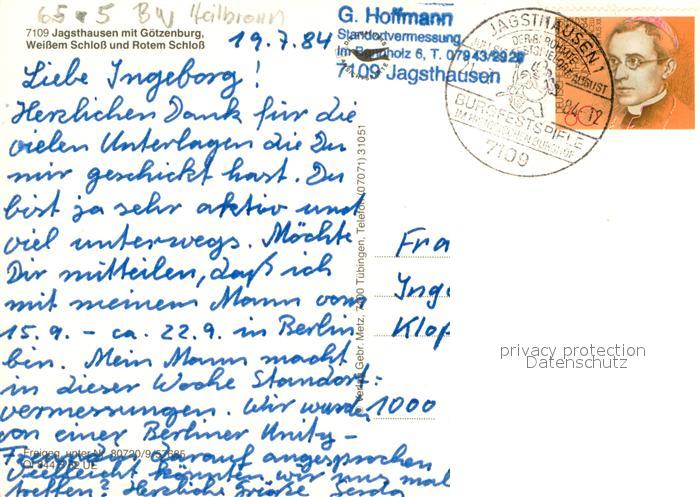 65 5 BW Heilbronn
7109 Jagsthausen mit Götzenburg,
Weißem Schloß und Rotem Schloß
19.7.84
G. Hoffmann
Standortvermessung
Im Bannholz 6, T. 07943/2926
7109 Jagsthausen
JAGSTHAUSEN 1
BURGFESTSPIELE
7109
Liebe Ingeborg!
Herzlichen Dank für die
vielen Unterlagen die Du
mir geschickt hast. Du
bist ja sehr aktiv und
viel unterwegs. Möchte
Dir mitteilen, daß ich
mit meinem Mann vom
15.9. - ca. 22.9. in Berlin
bin. Mein Mann macht
in dieser Woche Standort-
vermessungen. Wir wurden
von einer Berliner Unity-
Freundin darauf angesprochen
vielleicht könnten wir uns mal
treffen? Herzliche Grüße Gerda
Freigeg. unter Nr.
Verlag Gebr. Metz, 7400 Tübingen, Telefon (07071) 31051
Fra
Inge
Klop
1000
privacy protection
Datenschutz